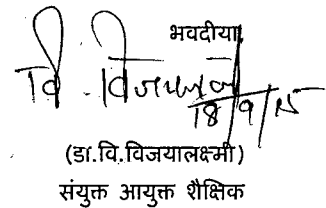 भवदीया
वि. विजयलक्ष्मी
18/9/15
(डा.वि.विजयालक्ष्मी)
संयुक्त आयुक्त शैक्षिक